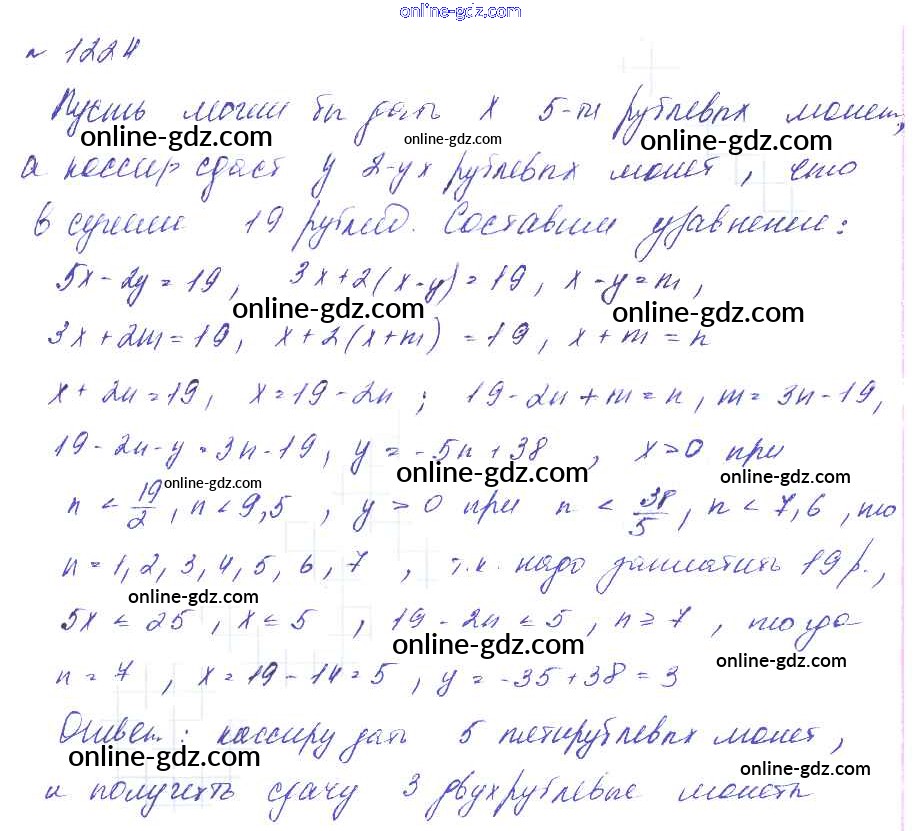 online-gdz.com
№ 1224
Пусть могли бы дать x 5-ти рублевых монет,
online-gdz.com online-gdz.com online-gdz.com
а кассир сдаст y 2-ух рублевых монет, что
в сумме 19 рублей. Составим уравнение:
5x - 2y = 19, 3x + 2(x - y) = 19, x - y = m,
online-gdz.com online-gdz.com
3x + 2m = 19, x + 2(x + m) = 19, x + m = n
x + 2n = 19, x = 19 - 2n ; 19 - 2n + m = n, m = 3n - 19,
19 - 2n - y = 3n - 19, y = -5n + 38, x > 0 при
online-gdz.com online-gdz.com online-gdz.com
n < 19/2, n < 9,5, y > 0 при n < 38/5, n < 7,6, то
n = 1, 2, 3, 4, 5, 6, 7, т.к. надо заплатить 19 р.,
online-gdz.com
5x ≤ 25, x ≤ 5, 19 - 2n ≤ 5, n ≥ 7, тогда
online-gdz.com online-gdz.com
n = 7, x = 19 - 14 = 5, y = -35 + 38 = 3
Ответ: кассиру дать 5 пятирублевых монет,
online-gdz.com online-gdz.com
и получить сдачу 3 двухрублевые монеты